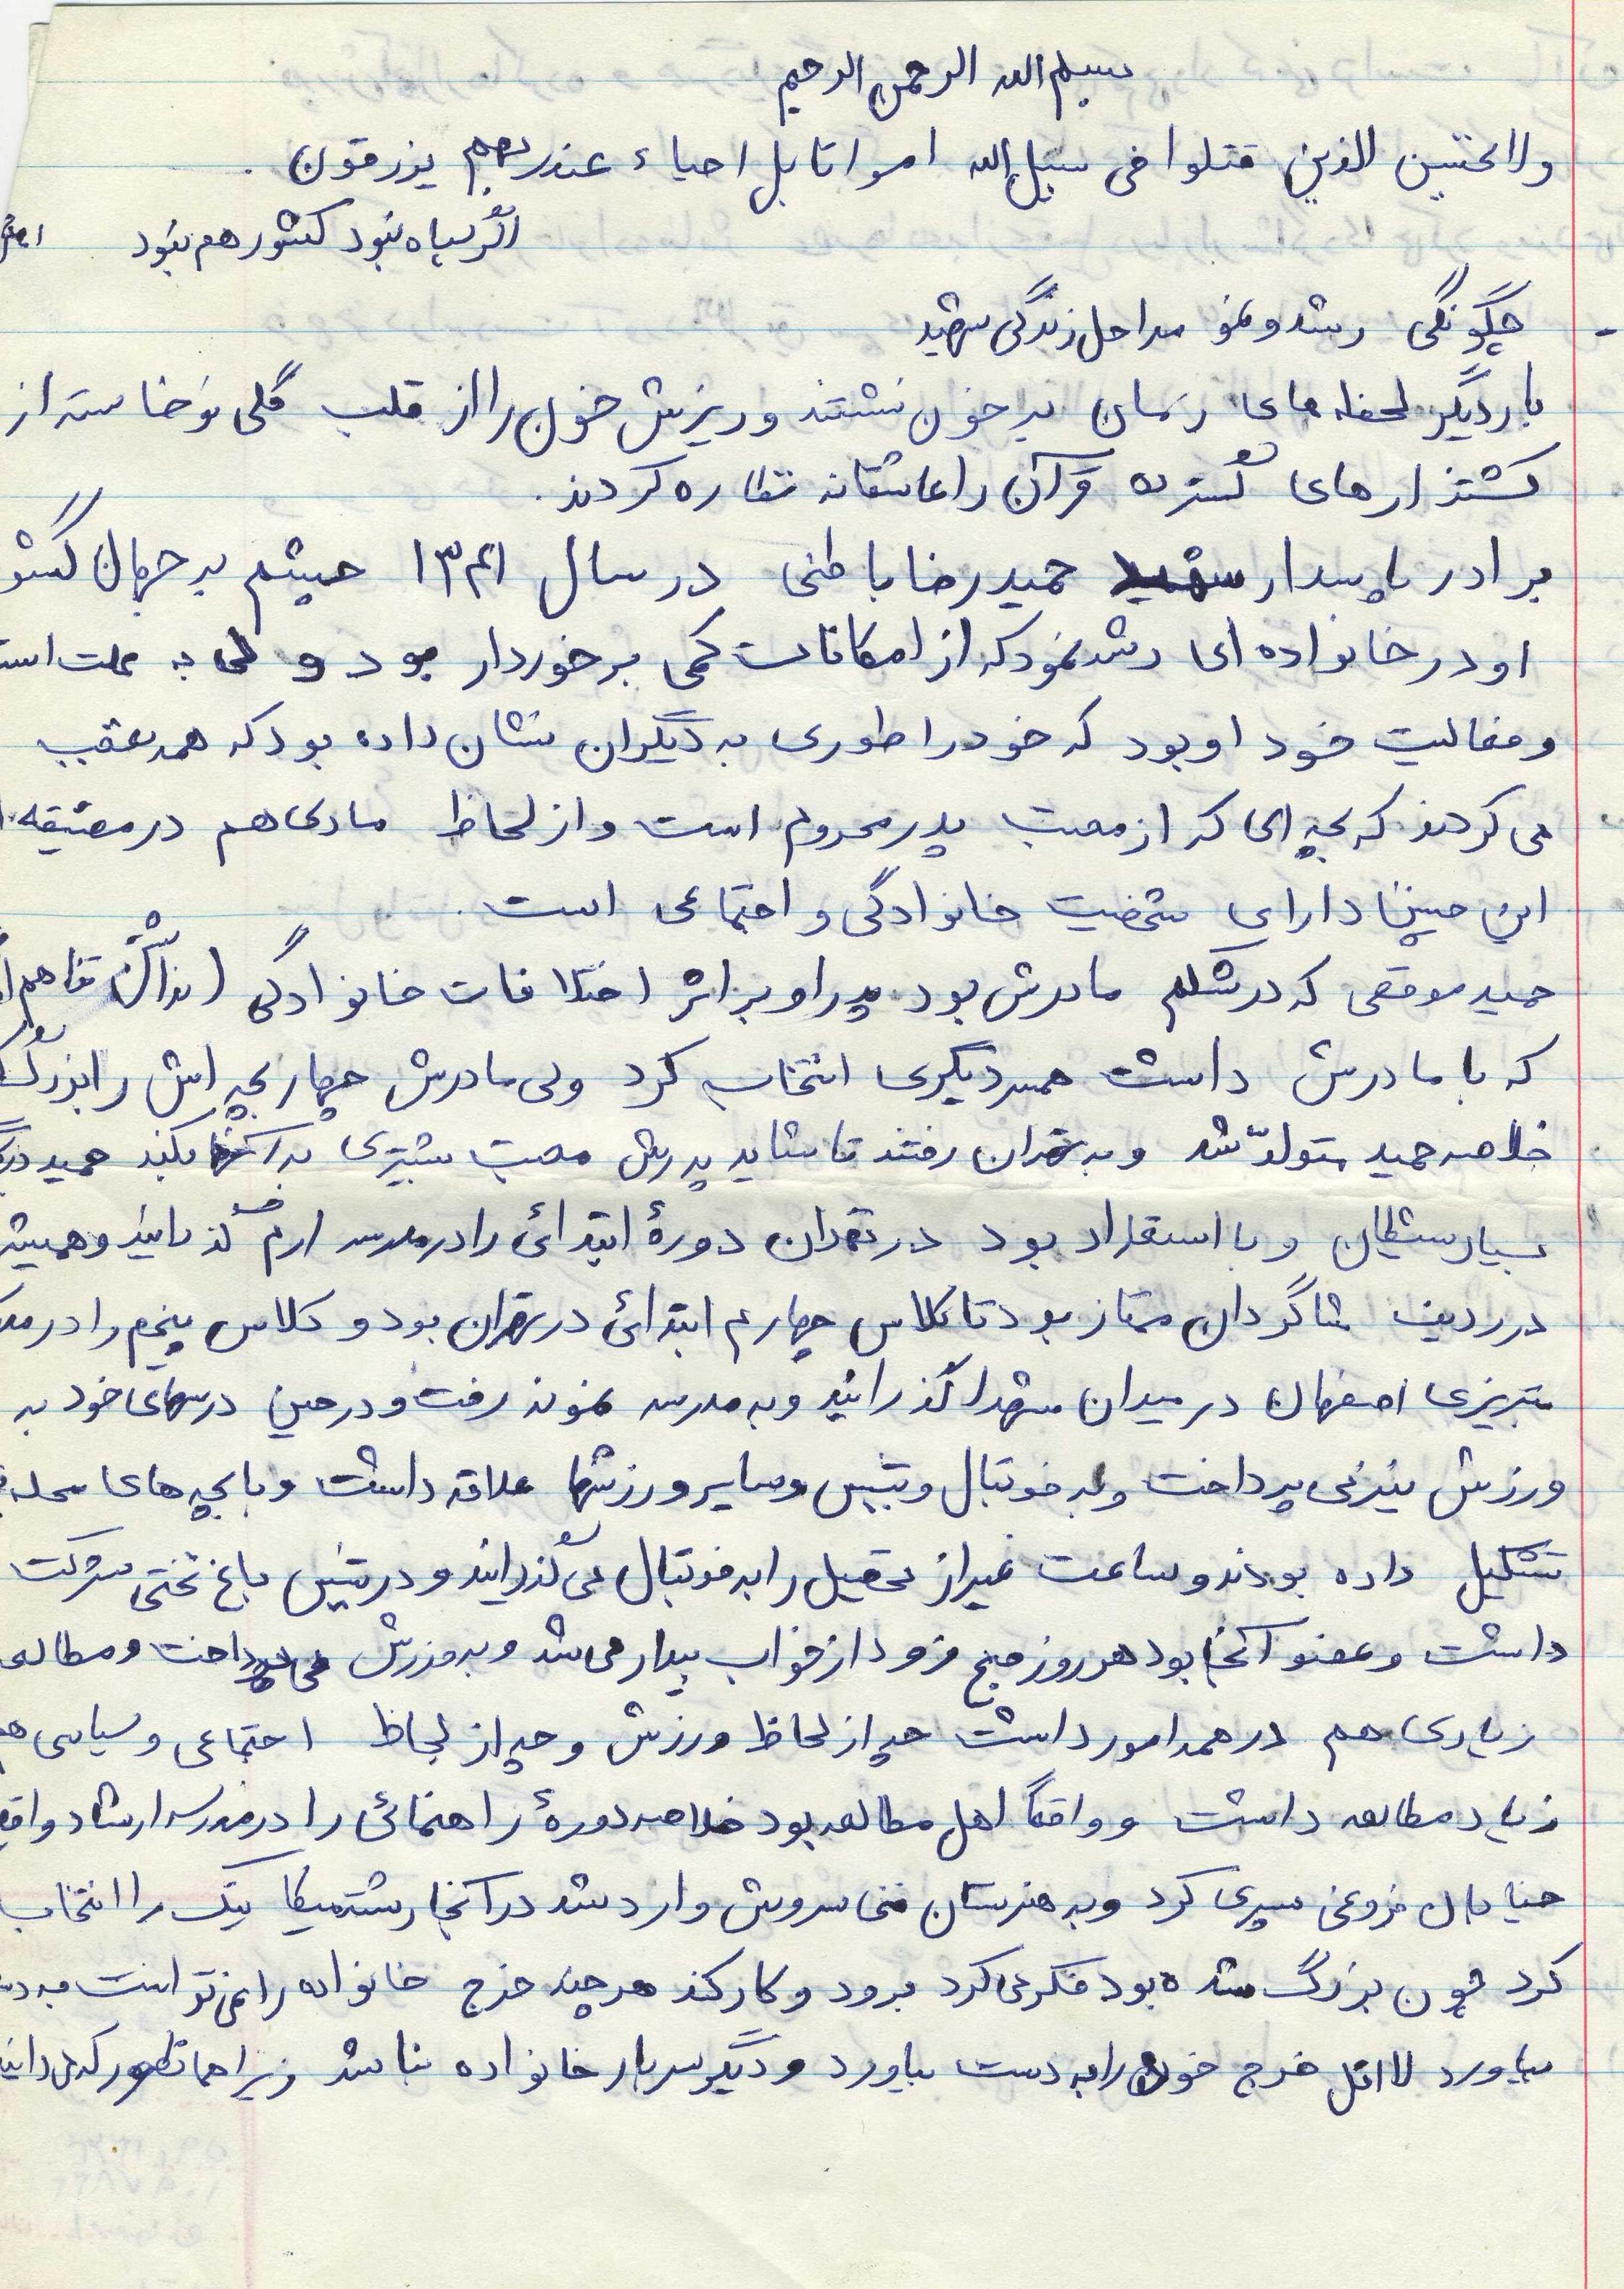 بسم الله الرحمن الرحیم
ولا تحسبن الذین قتلوا فی سبیل الله امواتا بل احیاء عند ربهم یرزقون .
اگر سپاه نبود کشور هم نبود
- چگونگی رشد و نمو مراحل زندگی شهید
بار دیگر لحظه های زمان به خون نشتند و ریزش خون را از قلب گلی نوخاسته از
کشتزارهای گسترده قرآن را عاشقانه نظاره کردند .
برادر پاسدار شهید حمیدرضا باطنی در سال ۱۳۴۱ چشم به جهان گشو
او در خانواده ای رشد نمود که از امکانات کمی برخوردار بود ولی به علت است
و فعالیت خود او بود که خود را طوری به دیگران نشان داده بود که همه تعجب
می کردند که بچه ای که از محبت پدر محروم است و از لحاظ مادی هم در مضیقه
این چنین دارای شخصیت خانوادگی و اجتماعی است .
حمید موقعی که در شکم مادرش بود پدر او بر اثر اختلافات خانوادگی (نداشتن تفاهم
که با مادرش داشت همسر دیگری انتخاب کرد ولی مادرش چهار بچه اش را بزرگ
خلاصه حمید متولد شد و به تهران رفتند تا شاید پدرش محبت بیشتری به آنها بکند حمید
بسیار شیطان و با استعداد بود در تهران دورهٔ ابتدائی را در مدرسه ارم گذرانید و همیشه
در ردیف شاگردان ممتاز بود تا کلاس چهارم ابتدائی در تهران بود و کلاس پنجم را در
تبریزی اصفهان در میدان شهدا گذرانید و به مدرسه نمونه رفت و در حین درسهای خود به
ورزش نیز می پرداخت و به فوتبال و تنیس و سایر ورزشها علاقه داشت و با بچه های محله
تشکیل داده بودند و ساعت غیر از تحصیل را به فوتبال می گذرانید و در تنیس باغ تختی شرکت
داشت و عضو آنجا بود هر روز صبح زود از خواب بیدار می شد و به ورزش می پرداخت و مطالعه
زیادی هم در همه امور داشت چه از لحاظ ورزش و چه از لحاظ اجتماعی و سیاسی
زیاد مطالعه داشت و واقعاً اهل مطالعه بود خلاصه دورهٔ راهنمائی را در مدرسه ارشاد واقع
خیابان فروغی سپری کرد و به هنرستان فنی سروش وارد شد در آنجا رشته مکانیک را انتخاب
کرد چون بزرگ شده بود فکر می کرد برود و کار کند هر چند خرج خانواده را نمی توانست به دست
بیاورد لااقل خرج خودش را به دست بیاورد و دیگر سربار خانواده نباشد زیرا همانطور که می دانید